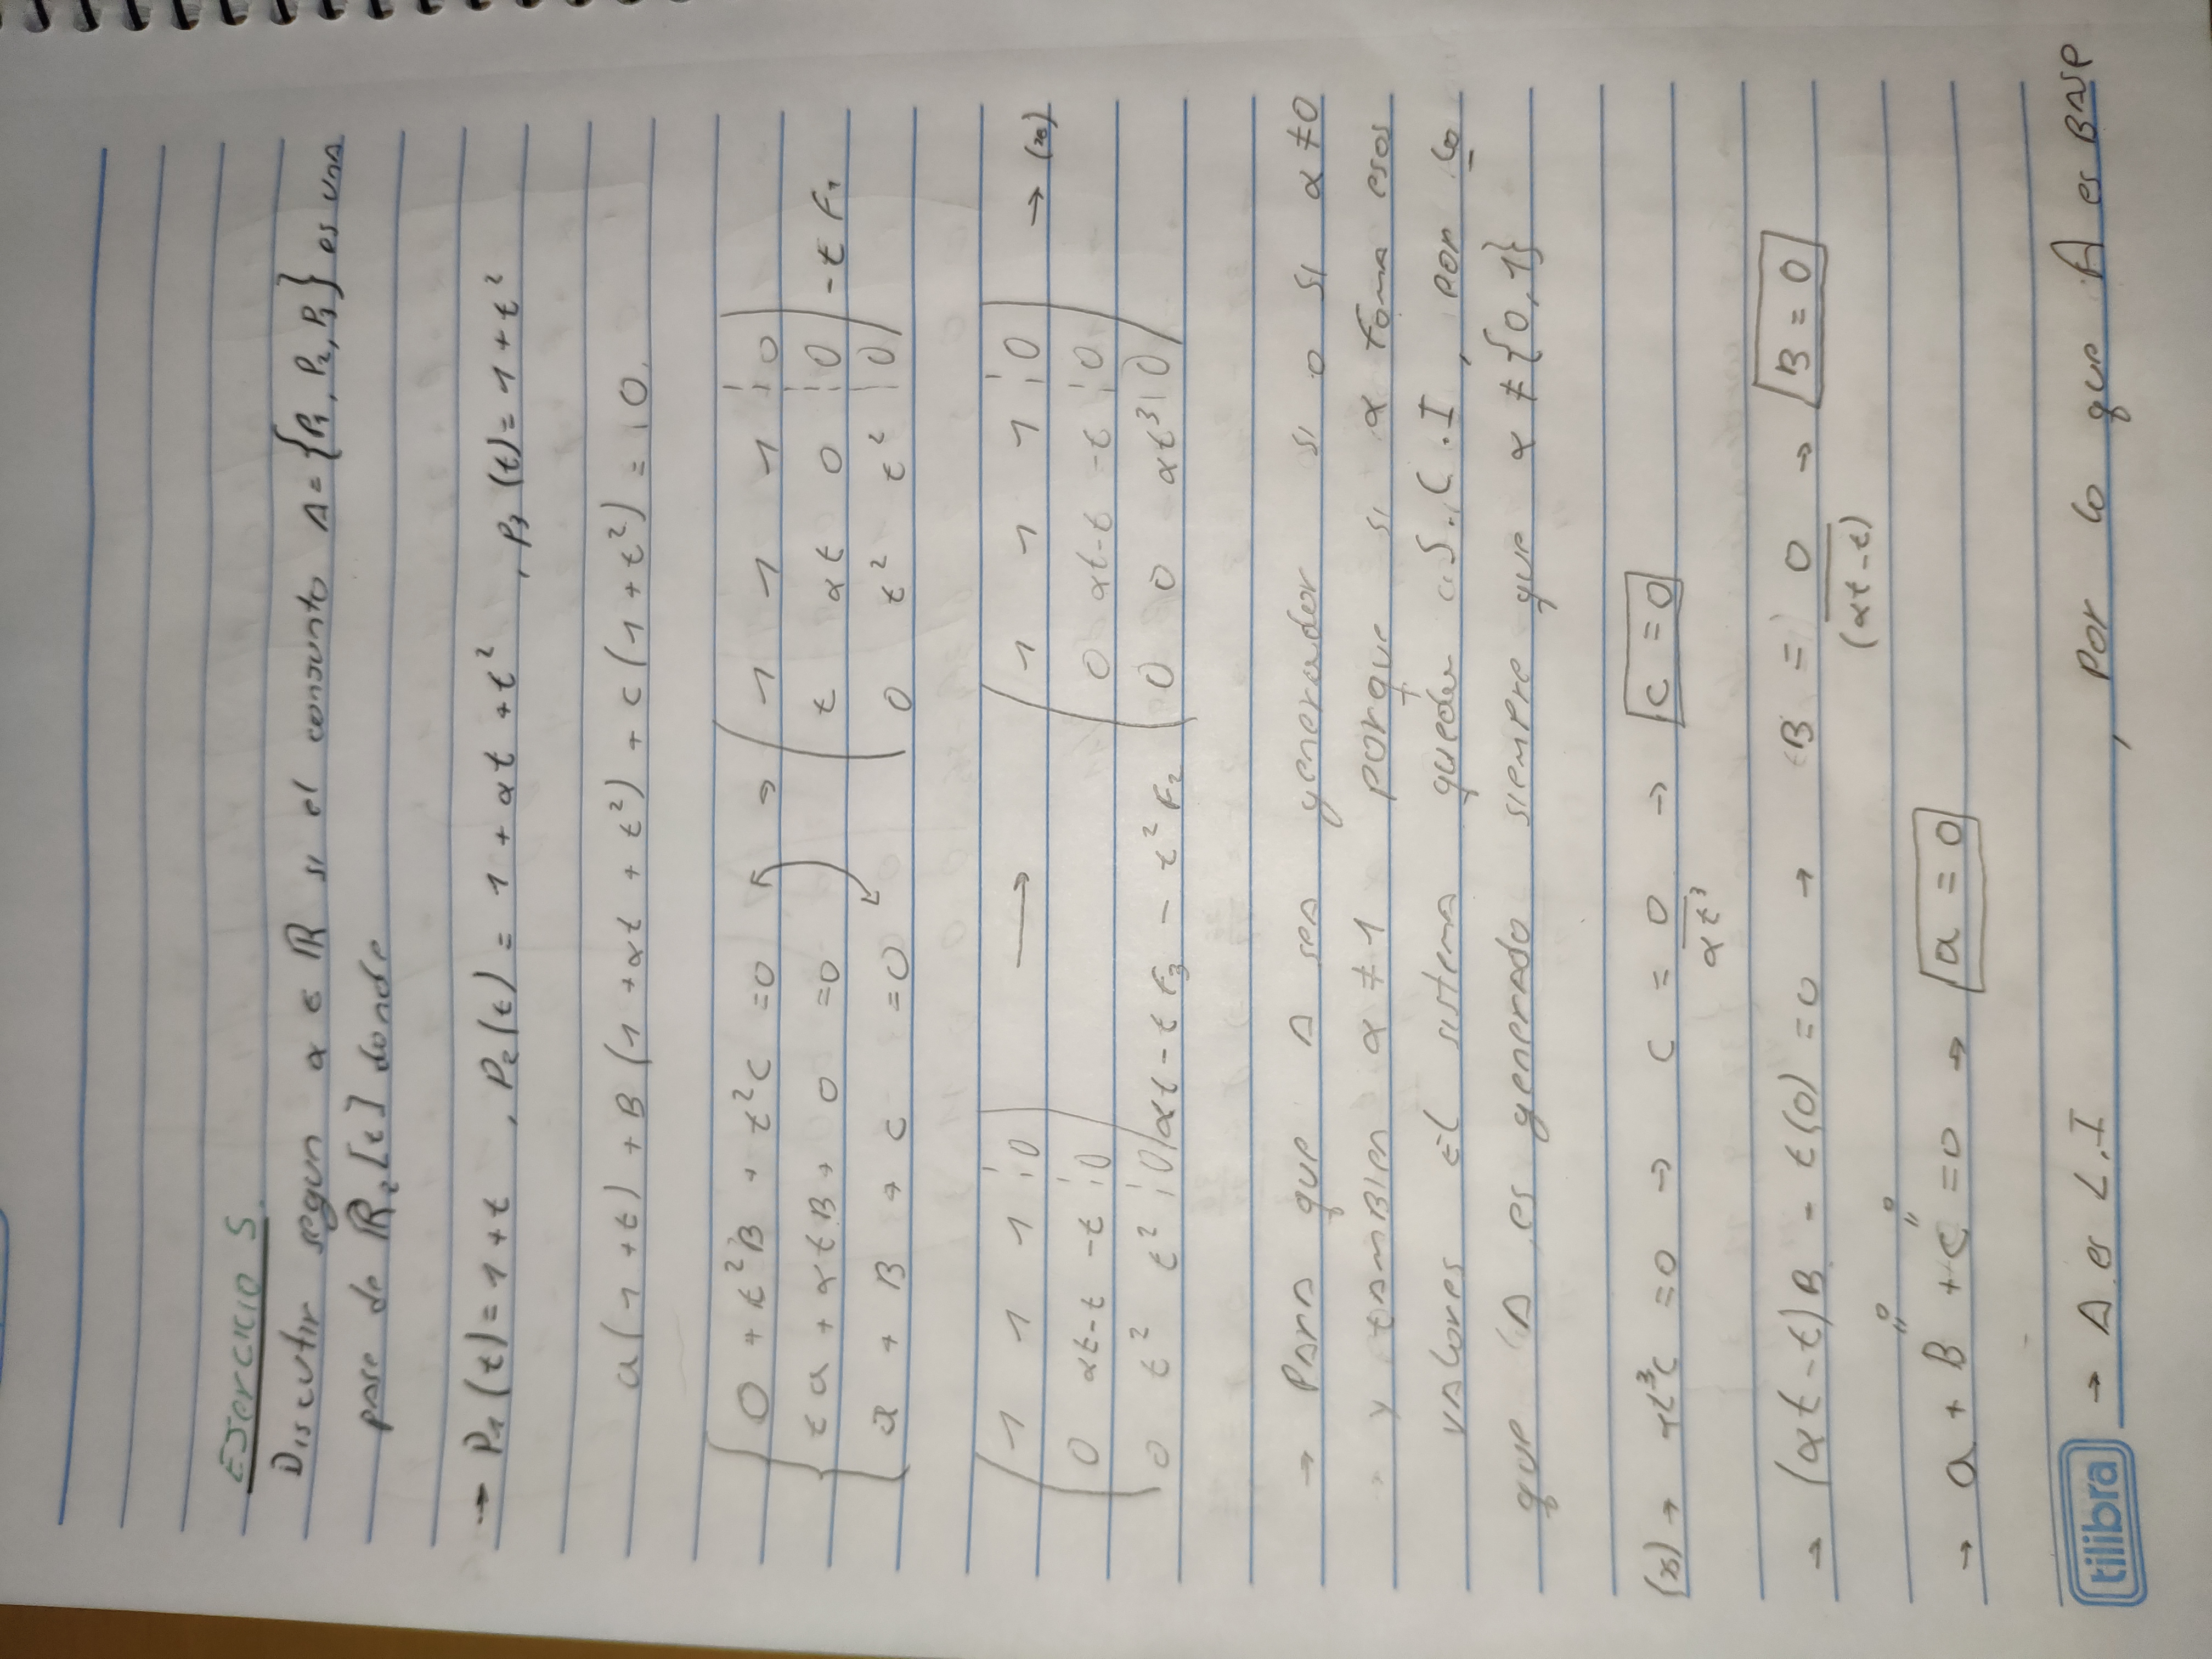 Ejercicio 5.
Discutir segun α ∈ ℝ si el conjunto A = {P₁, P₂, P₃} es una
base de ℝ₂[t] donde
→ P₁(t) = 1 + t , P₂(t) = 1 + αt + t² , P₃(t) = 1 + t²
a(1 + t) + B(1 + αt + t²) + C(1 + t²) = 0.
0 + t²B + t²C = 0 → 1 1 1 | 0
ta + αtB + 0 = 0 t αt 0 | 0 - t F₁
a + B + C = 0 0 t² t² | 0
1 1 1 | 0 → 1 1 1 | 0 → (*)
0 αt-t -t | 0 0 αt-t -t | 0
0 t² t² | 0 αt-t F₃ - t² F₂ 0 0 αt³ | 0
→ Para que A sea generador si o si α ≠ 0
y tambien α ≠ 1 porque si α toma esos
valores El sistema queda S.C.I, por lo
que A es generado siempre que α ≠ {0,1}
(*) → αt³C = 0 → C = 0/αt³ → C = 0
→ (αt-t)B - t(0) = 0 → B = 0/(αt-t) → B = 0
→ a + B + C = 0 → a = 0
tilibra → A es L.I , por lo que A es BASE